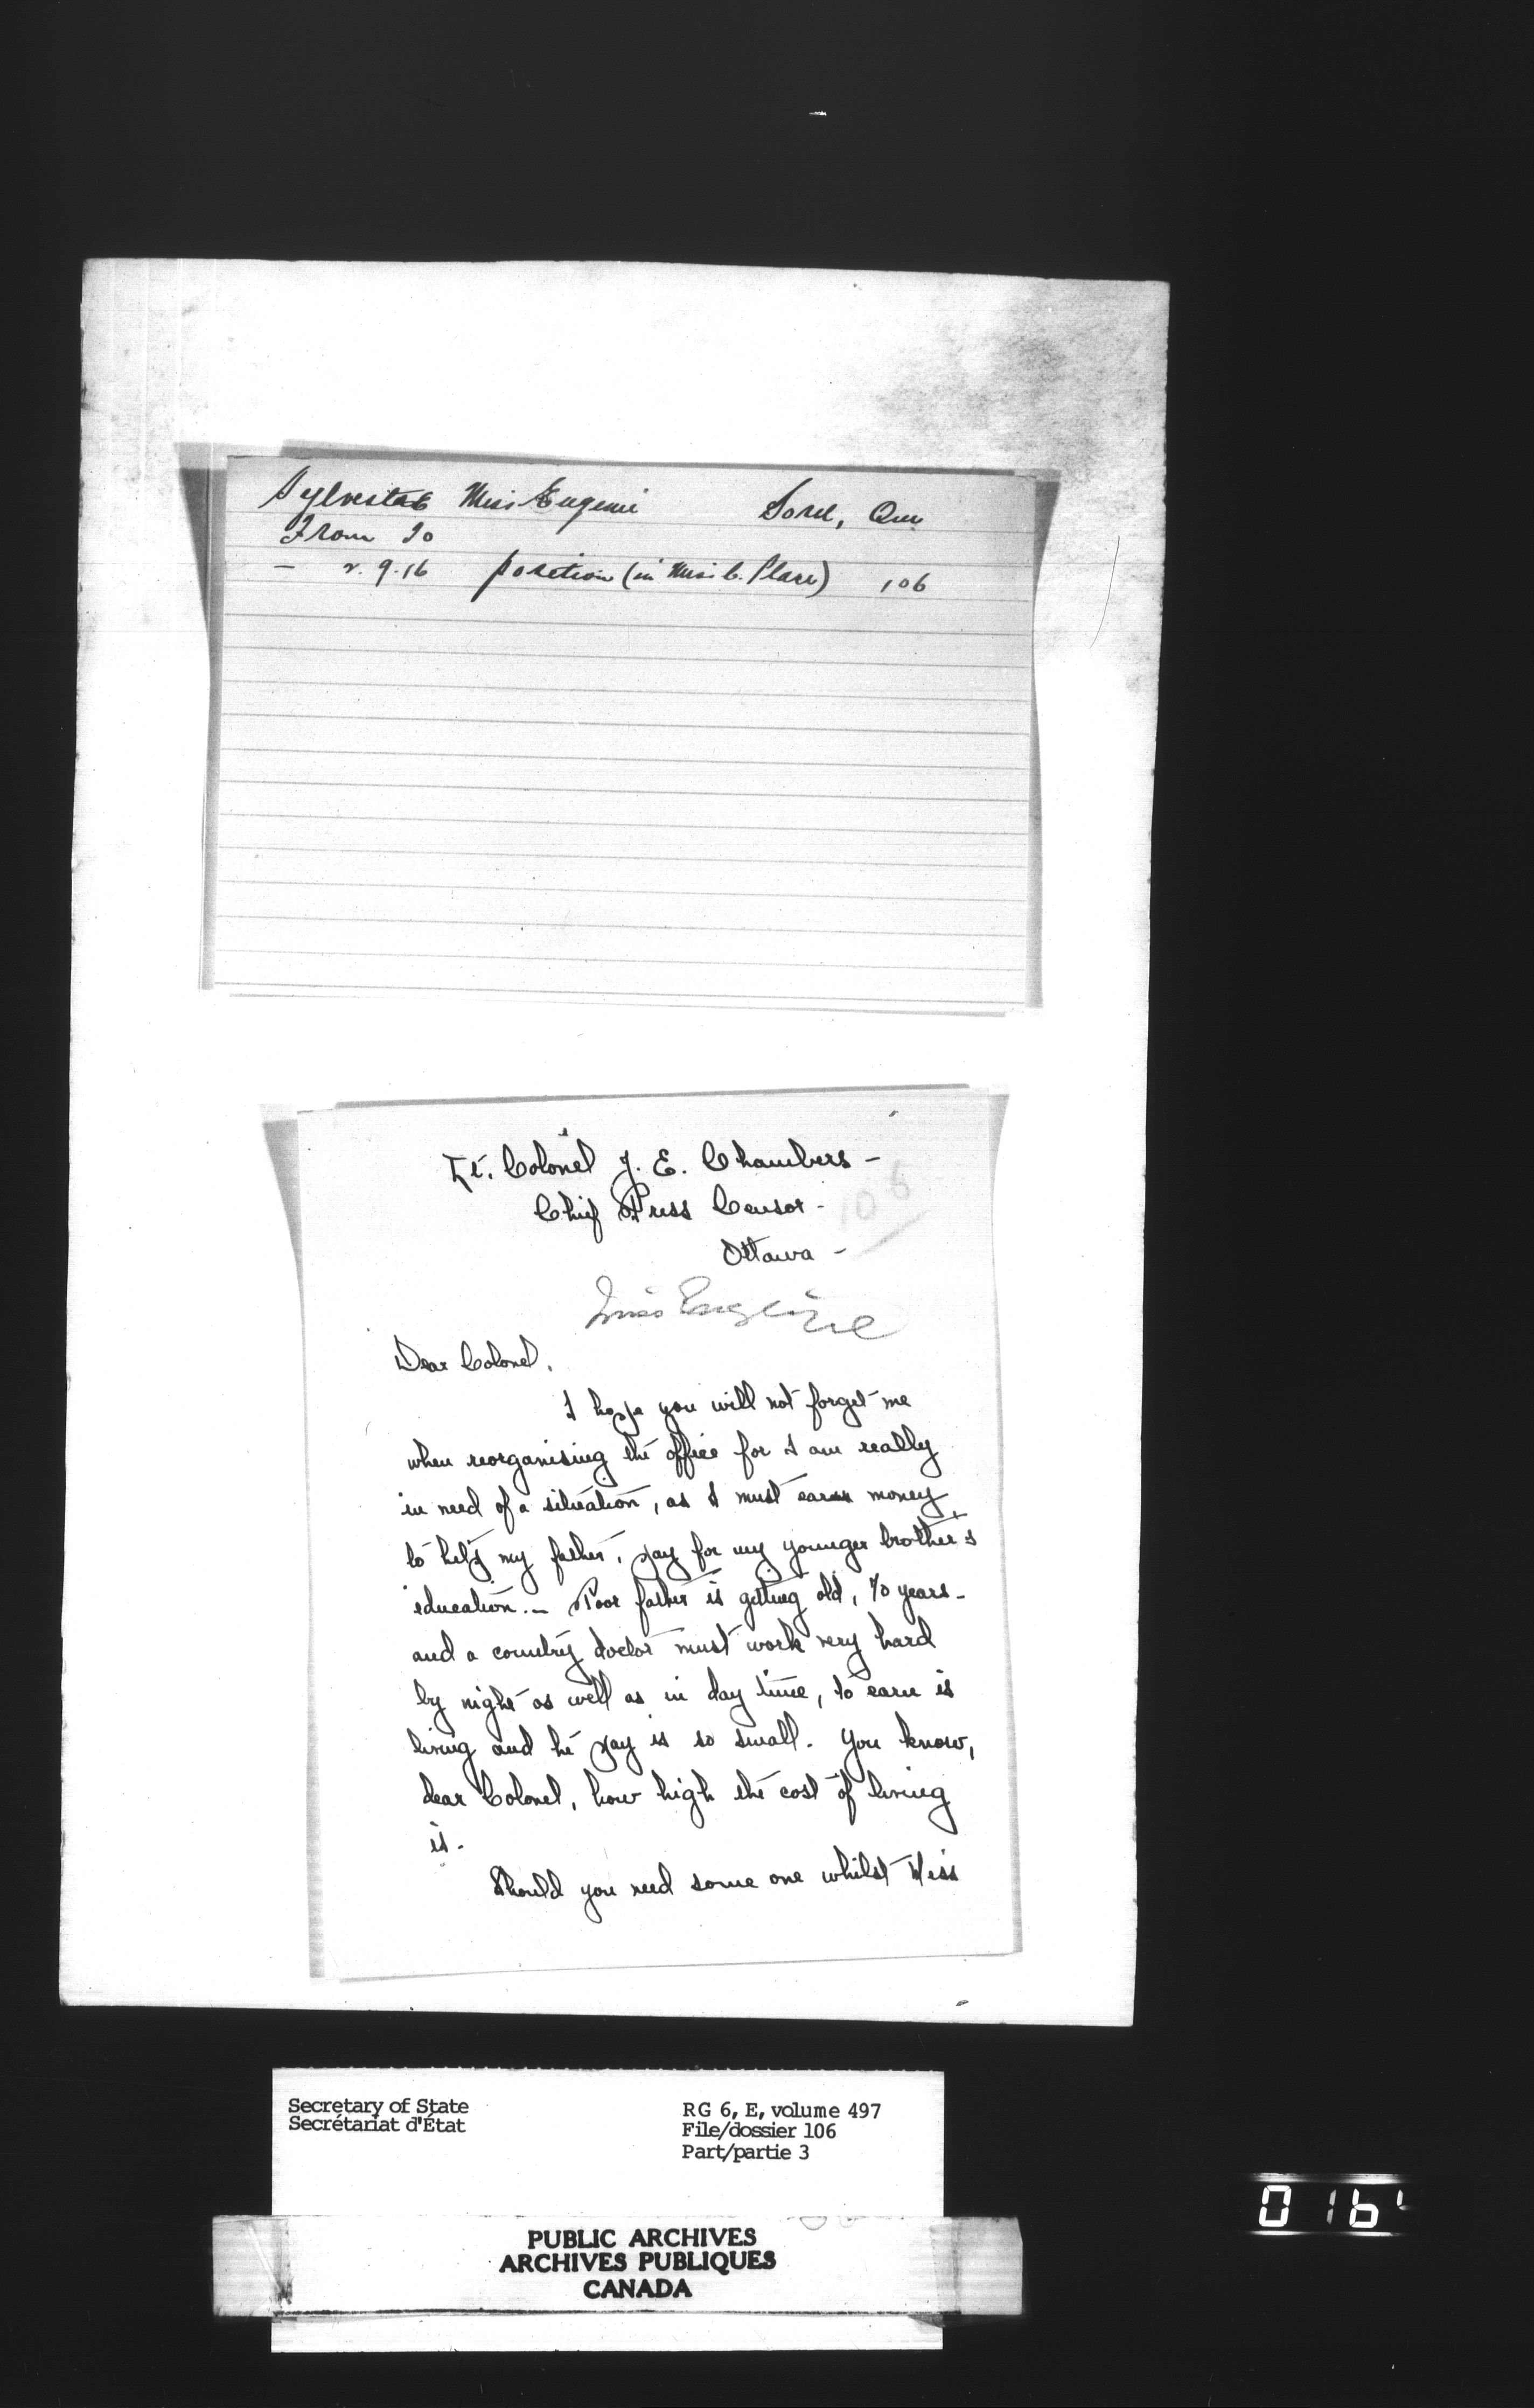 Sylvestre Miss Eugenie Sorel, Que
From To
— 2.9.16 position (in Miss C. Place) 106
Lt. Colonel J. E. Chambers -
Chief Press Censor -
106
Ottawa -
Miss Eugénie
Dear Colonel,
I hope you will not forget me
when reorganising the office for I am really
in need of a situation, as I must earn money
to help my father, pay for my younger brother's
education. - Poor father is getting old, 70 years -
and a country doctor must work very hard
by night as well as in day time, to earn is
living and he pay is so small. You know,
dear Colonel, how high the cost of living
is.
Should you need some one whilst Miss
Secretary of State
Secrétariat d'État
RG 6, E, volume 497
File/dossier 106
Part/partie 3
PUBLIC ARCHIVES
ARCHIVES PUBLIQUES
CANADA
016